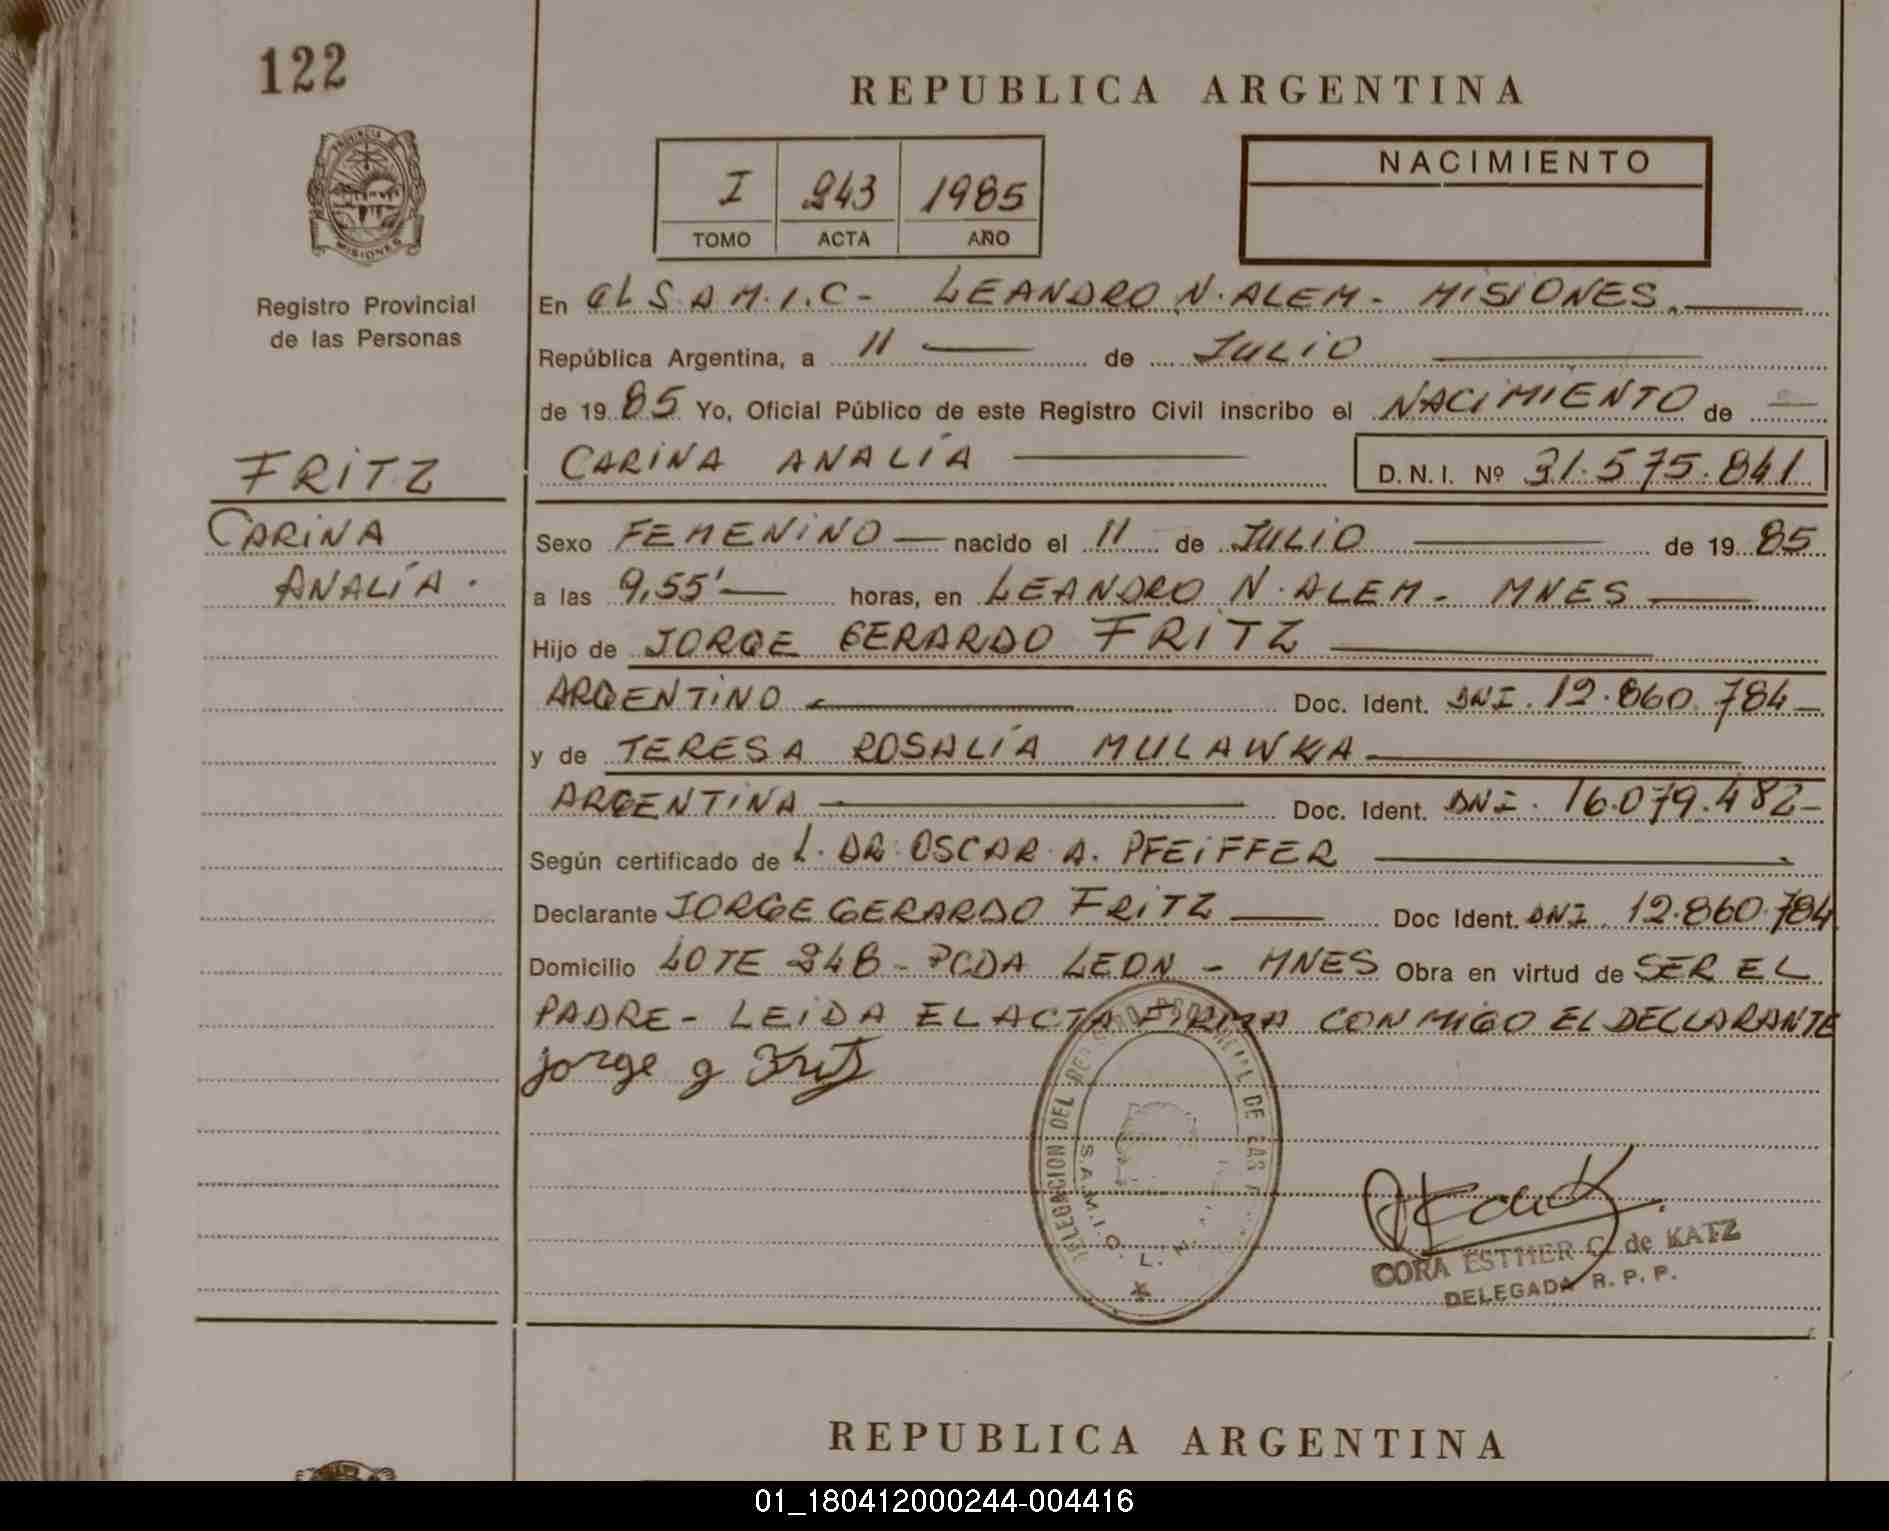 122
REPUBLICA ARGENTINA
PROVINCIA
MISIONES
Registro Provincial
de las Personas
I 243 1985
TOMO ACTA AÑO
NACIMIENTO
En el S.A.M.I.C- LEANDRO N. ALEM - MISIONES.
República Argentina, a 11 de JULIO
de 19 85 Yo, Oficial Público de este Registro Civil inscribo el NACIMIENTO de
CARINA ANALÍA D. N. I. Nº 31.575.841
FRITZ
CARINA
ANALÍA.
Sexo FEMENINO nacido el 11 de JULIO de 19 85
a las 9,55' horas, en LEANDRO N. ALEM - MNES
Hijo de JORGE GERARDO FRITZ
ARGENTINO Doc. Ident. DNI. 12.860.784
y de TERESA ROSALÍA MULAWKA
ARGENTINA Doc. Ident. DNI. 16.079.482
Según certificado de L. DR. OSCAR A. PFEIFFER
Declarante JORGE GERARDO FRITZ Doc Ident. DNI 12.860.784
Domicilio LOTE 248 - PCDA LEON - MNES Obra en virtud de SER EL
PADRE - LEIDA EL ACTA FIRMA CONMIGO EL DECLARANTE
jorge g Fritz
DELEGACION DEL DE LAS
S.A.M.I.C. L. N.
CORA ESTHER C. de KATZ
DELEGADA R. P. P.
REPUBLICA ARGENTINA
01_180412000244-004416